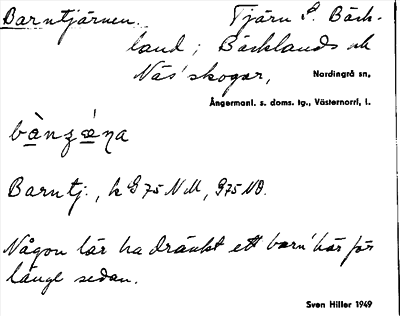 Barntjärnen. Tjärn S. Bäck-
land; Bäcklands och
Näs' skogar, Nordingrå sn,
Ångermanl. s. doms. tg., Västernorrl. l.
Barntj., k
Någon lär ha dränkt ett barn här för
länge sedan.
Sven Hiller 1949